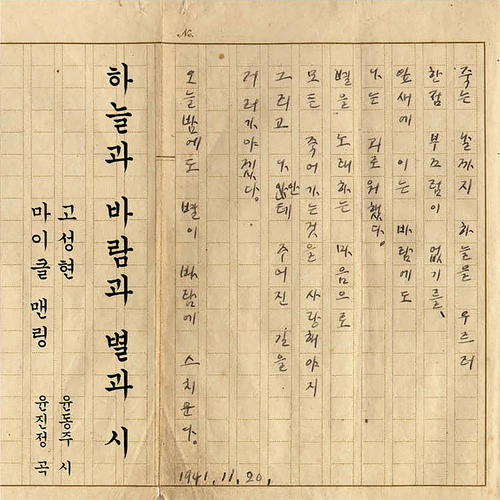 No.
죽는 날까지 하늘을 우르러
한점 부끄럼이 없기를、
잎새에 이는 바람에도
나는 괴로워했다.
별을 노래하는 마음으로
모든 죽어가는것을 사랑해야지
그리고 나안테 주어진 길을
거러가야겠다.
오늘밤에도 별이 바람에 스치운다.
1941.11.20.
하늘과 바람과 별과 시
고성현
마이클 맨링
윤동주 시
윤진정 곡